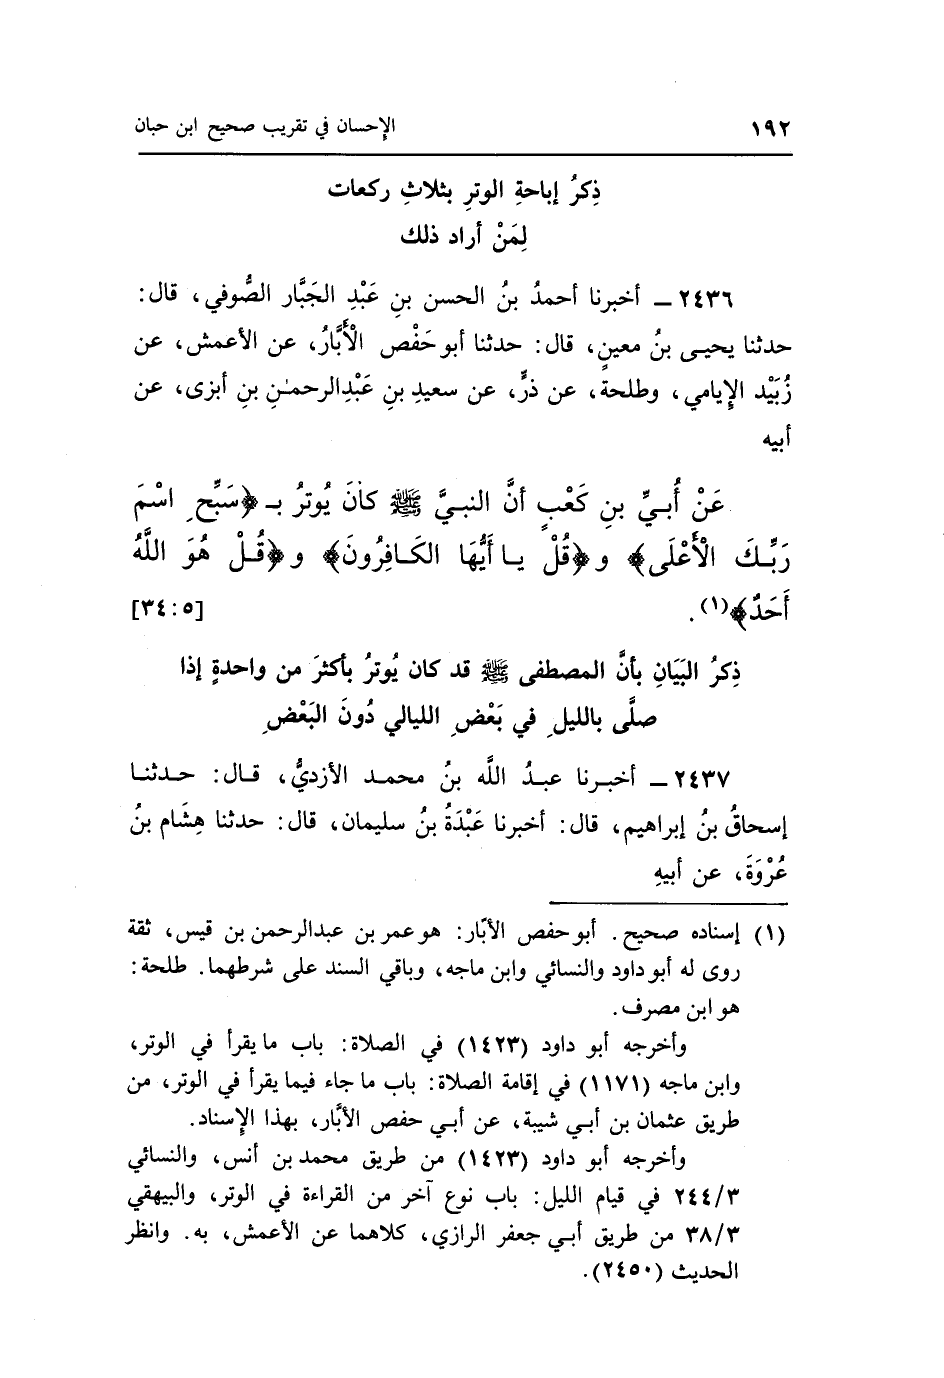 ١٩٢ الإحسان في تقريب صحيح ابن حبان
ذِكرُ إباحةِ الوترِ بثلاثِ ركعات
لِمَنْ أراد ذلك
٢٤٣٦ ــ أخبرنا أحمدُ بنُ الحسن بنِ عَبْدِ الجَبَّار الصُّوفي، قال:
حدثنا يحيى بنُ معينٍ، قال: حدثنا أبو حَفْص الْأَبَّارُ، عن الأعمش، عن
زُبَيْد الإيامي، وطلحة، عن ذرٍّ، عن سعيدِ بنِ عَبْدِالرحمـٰنِ بنِ أبزى، عن
أبيه
عَنْ أُبيِّ بنِ كَعْبٍ أنَّ النبيَّ ﷺ كانَ يُوترُ بـ ﴿سَبِّحِ اسْمَ
رَبِّـكَ الْأَعْلَى﴾ و ﴿قُلْ يـا أَيُّهَا الكَـافِرُونَ﴾ و ﴿قُـلْ هُوَ اللَّهُ
أَحَدٌ﴾(١). [٥: ٣٤]
ذِكرُ البَيَانِ بأنَّ المصطفى ﷺ قد كان يُوترُ بأكثرَ من واحدةٍ إذا
صلَّى بالليلِ في بَعْضِ الليالي دُونَ البَعْضِ
٢٤٣٧ ــ أخبـرنا عبـدُ اللَّه بنُ محمـد الأزديُّ، قـال: حـدثنـا
إسحاقُ بنُ إبراهيم، قال: أخبرنا عَبْدَةُ بنُ سليمان، قال: حدثنا هِشَام بنُ
عُرْوَةَ، عن أبيهِ
(١) إسناده صحيح. أبو حفص الأبّار: هو عمر بن عبدالرحمن بن قيس، ثقة
روى له أبو داود والنسائي وابن ماجه، وباقي السند على شرطهما. طلحة:
هو ابن مصرف.
وأخرجه أبو داود (١٤٢٣) في الصلاة: باب ما يقرأ في الوتر،
وابن ماجه (١١٧١) في إقامة الصلاة: باب ما جاء فيما يقرأ في الوتر، من
طريق عثمان بن أبي شيبة، عن أبي حفص الأبَّار، بهذا الإسناد.
وأخرجه أبو داود (١٤٢٣) من طريق محمد بن أنس، والنسائي
٢٤٤/٣ في قيام الليل: باب نوع آخر من القراءة في الوتر، والبيهقي
٣٨/٣ من طريق أبي جعفر الرازي، كلاهما عن الأعمش، به. وانظر
الحديث (٢٤٥٠).